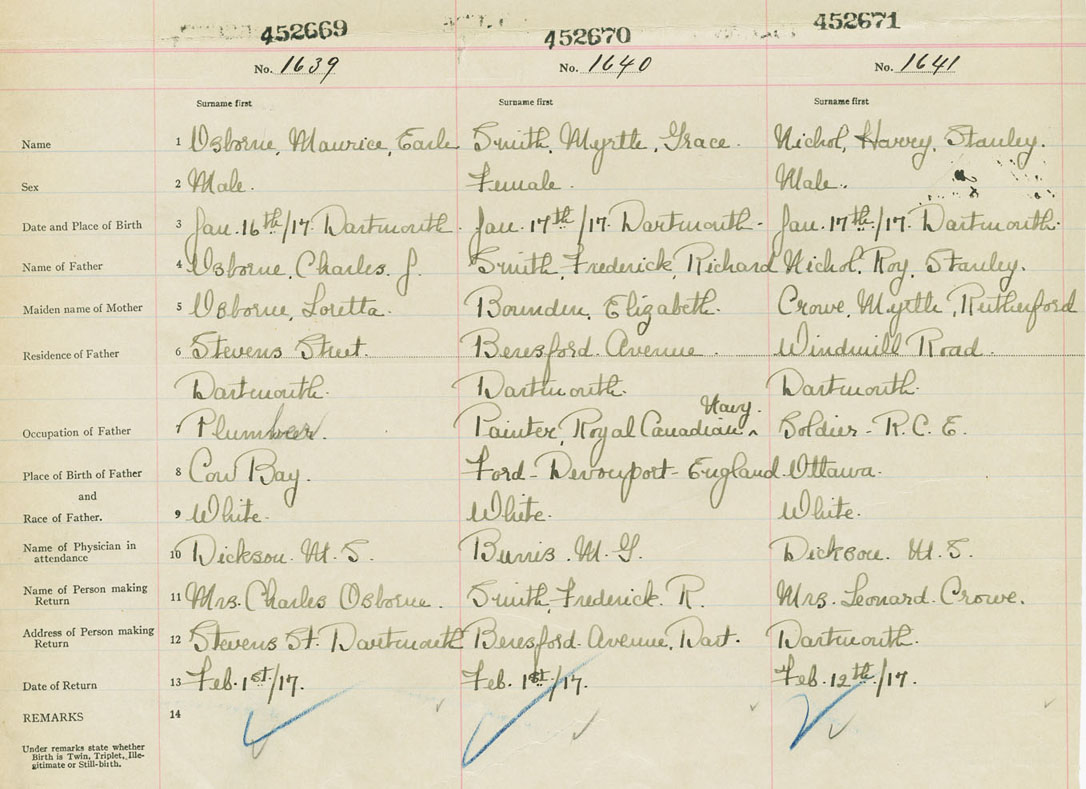 452669 452670 452671
No. 1639 No. 1640 No. 1641
Surname first Surname first Surname first
Name 1 Osborne, Maurice, Earle Smith, Myrtle, Grace. Nichol, Harvey, Stanley.
Sex 2 Male. Female. Male.
Date and Place of Birth 3 Jan. 16th/17. Dartmouth. Jan. 17th/17. Dartmouth- Jan. 17th/17. Dartmouth.
Name of Father 4 Osborne, Charles. J. Smith, Frederick, Richard Nichol, Roy, Stanley.
Maiden name of Mother 5 Osborne, Loretta. Elizabeth. Crowe, Myrtle, Rutherford
Residence of Father 6 Stevens Street. Beresford Avenue. Windmill Road.
Dartmouth. Dartmouth. Dartmouth.
Navy.
Occupation of Father 7 Plumber. Painter, Royal Canadian ^ Soldier - R.C.E.
Place of Birth of Father 8 Cow Bay. Ford - Devonport - England. Ottawa.
and
Race of Father. 9 White. White. White.
Name of Physician in
attendance 10 Dickson. M. S. Burris. M G. Dickson. M. S.
Name of Person making
Return 11 Mrs. Charles Osborne. Smith, Frederick. R. Mrs. Leonard Crowe.
Address of Person making
Return 12 Stevens St. Dartmouth Beresford Avenue, Dart. Dartmouth.
Date of Return 13 Feb. 1st/17. Feb. 1st/17. Feb. 12th/17.
REMARKS 14
Under remarks state whether
Birth is Twin, Triplet, Ille-
gitimate or Still-birth.